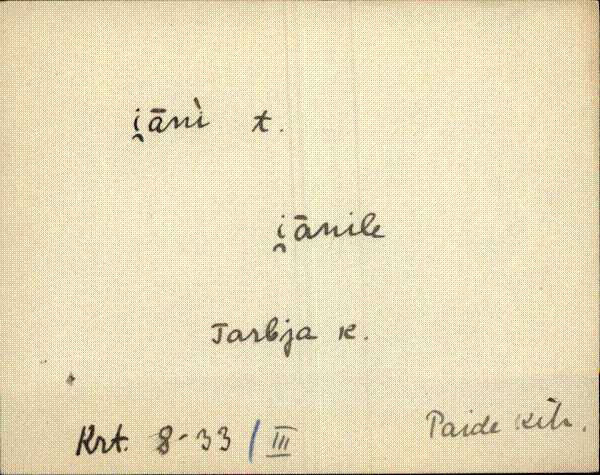 i̯āǹi t.
i̯ānile
Tarbja k.
Krt. 8-33/III
Paide kih.